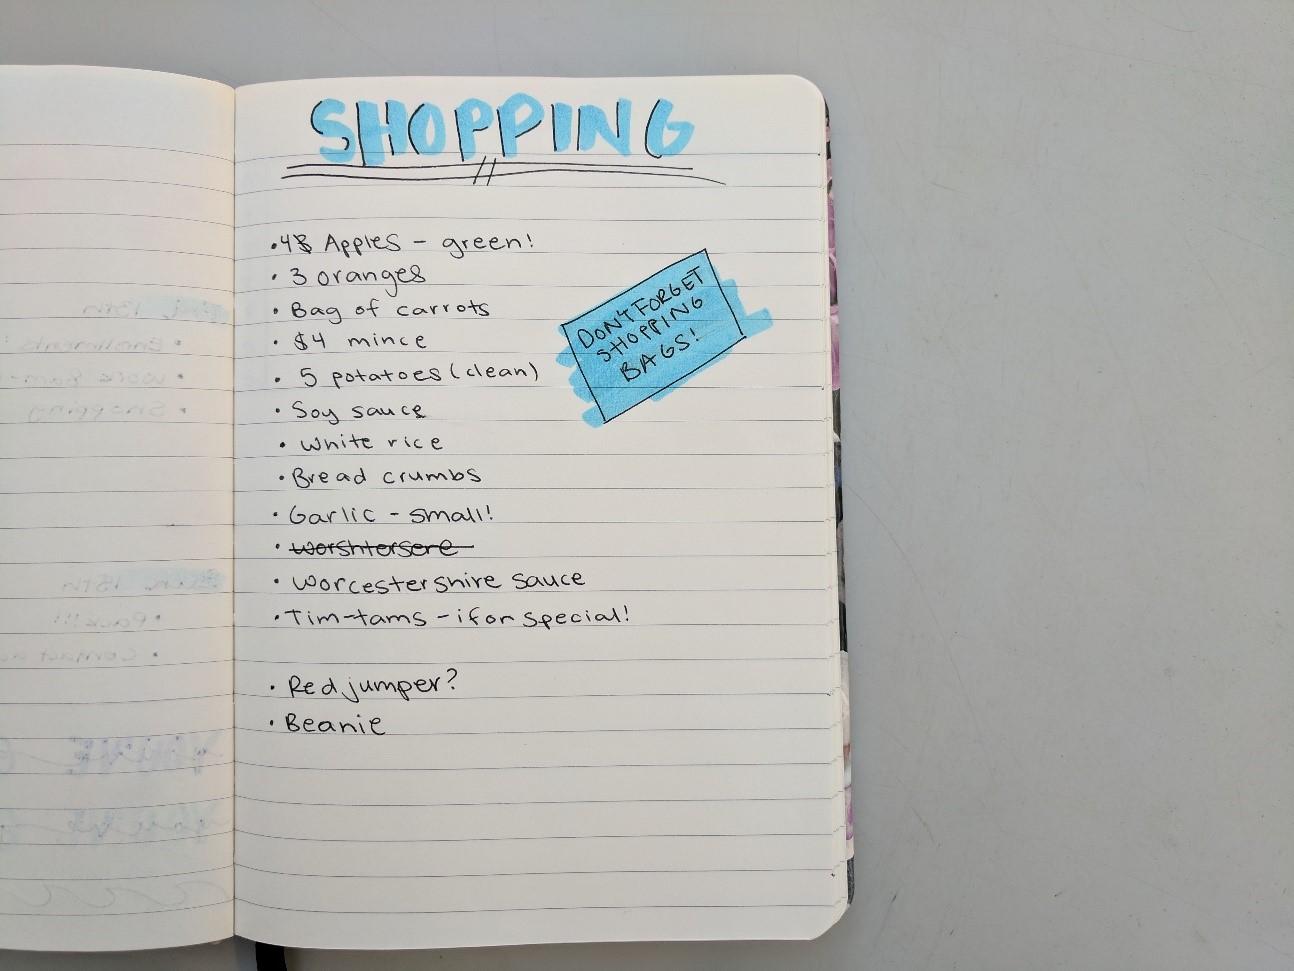 SHOPPING
• 4 Apples – green!
• 3 oranges
• Bag of carrots
• $4 mince
• 5 potatoes (clean)
• Soy sauce
• White rice
• Bread crumbs
• Garlic – small!
• Worshtersere
• Worcestershire sauce
• Tim-tams – if on special!
• Red jumper?
• Beanie
DON'T FORGET
SHOPPING
BAGS!